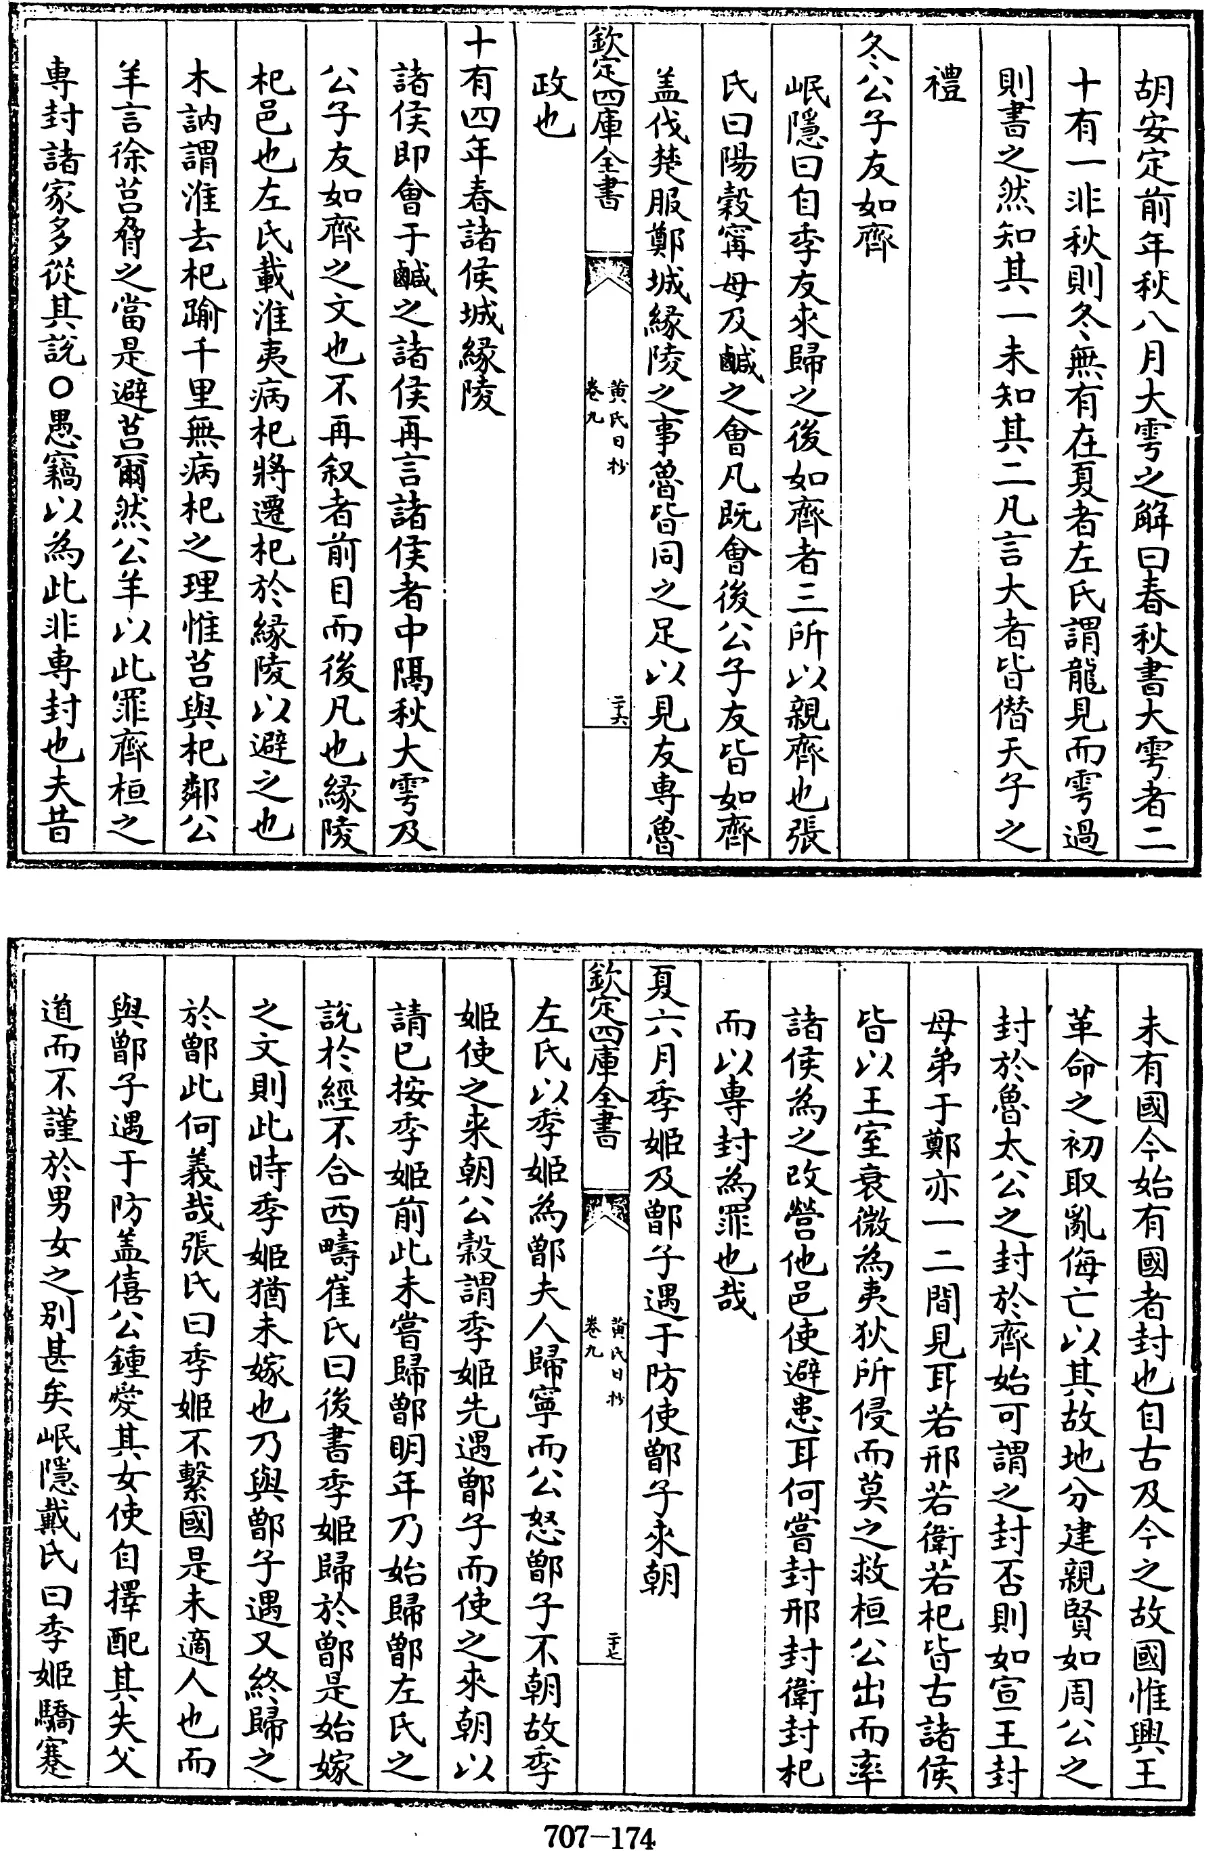 胡安定前年秋八月大雩之解曰春秋書大雩者二
十有一非秋則冬無有在夏者左氏謂龍見而雩過
則書之然知其一未知其二凡言大者皆僣天子之
禮
冬公子友如齊
岷隱曰自季友來歸之後如齊者三所以親齊也張
氏曰陽穀甯母及鹹之會凡既會後公子友皆如齊
盖伐楚服鄭城緣陵之事魯皆同之足以見友専魯
欽定四庫全書
黄氏日抄
卷九
二十六
政也
十有四年春諸侯城緣陵
諸侯即會于鹹之諸侯再言諸侯者中隔秋大雩及
公子友如齊之文也不再叙者前目而後凡也緣陵
杞邑也左氏載淮夷病杞將遷杞於緣陵以避之也
木訥謂淮去杞踰千里無病杞之理惟莒與杞鄰公
羊言徐莒脅之當是避莒爾然公羊以此罪齊桓之
専封諸家多從其說○愚竊以為此非専封也夫昔
未有國今始有國者封也自古及今之故國惟興王
革命之初取亂侮亡以其故地分建親賢如周公之
封於魯太公之封於齊始可謂之封否則如宣王封
母弟于鄭亦一二間見耳若邢若衛若杞皆古諸侯
皆以王室衰微為夷狄所侵而莫之救桓公出而率
諸侯為之改營他邑使避患耳何嘗封邢封衛封杞
而以専封為罪也哉
夏六月季姬及鄫子遇于防使鄫子來朝
欽定四庫全書
黄氏日抄
卷九
二十七
左氏以季姬為鄫夫人歸寧而公怒鄫子不朝故季
姬使之来朝公穀謂季姬先遇鄫子而使之来朝以
請已按季姬前此未嘗歸鄫明年乃始歸鄫左氏之
說於經不合西疇崔氏曰後書季姬歸於鄫是始嫁
之文則此時季姬猶未嫁也乃與鄫子遇又終歸之
於鄫此何義哉張氏曰季姬不繫國是未適人也而
與鄫子遇于防盖僖公鍾愛其女使自擇配其失父
道而不謹於男女之别甚矣岷隱戴氏曰季姬驕蹇
707-174